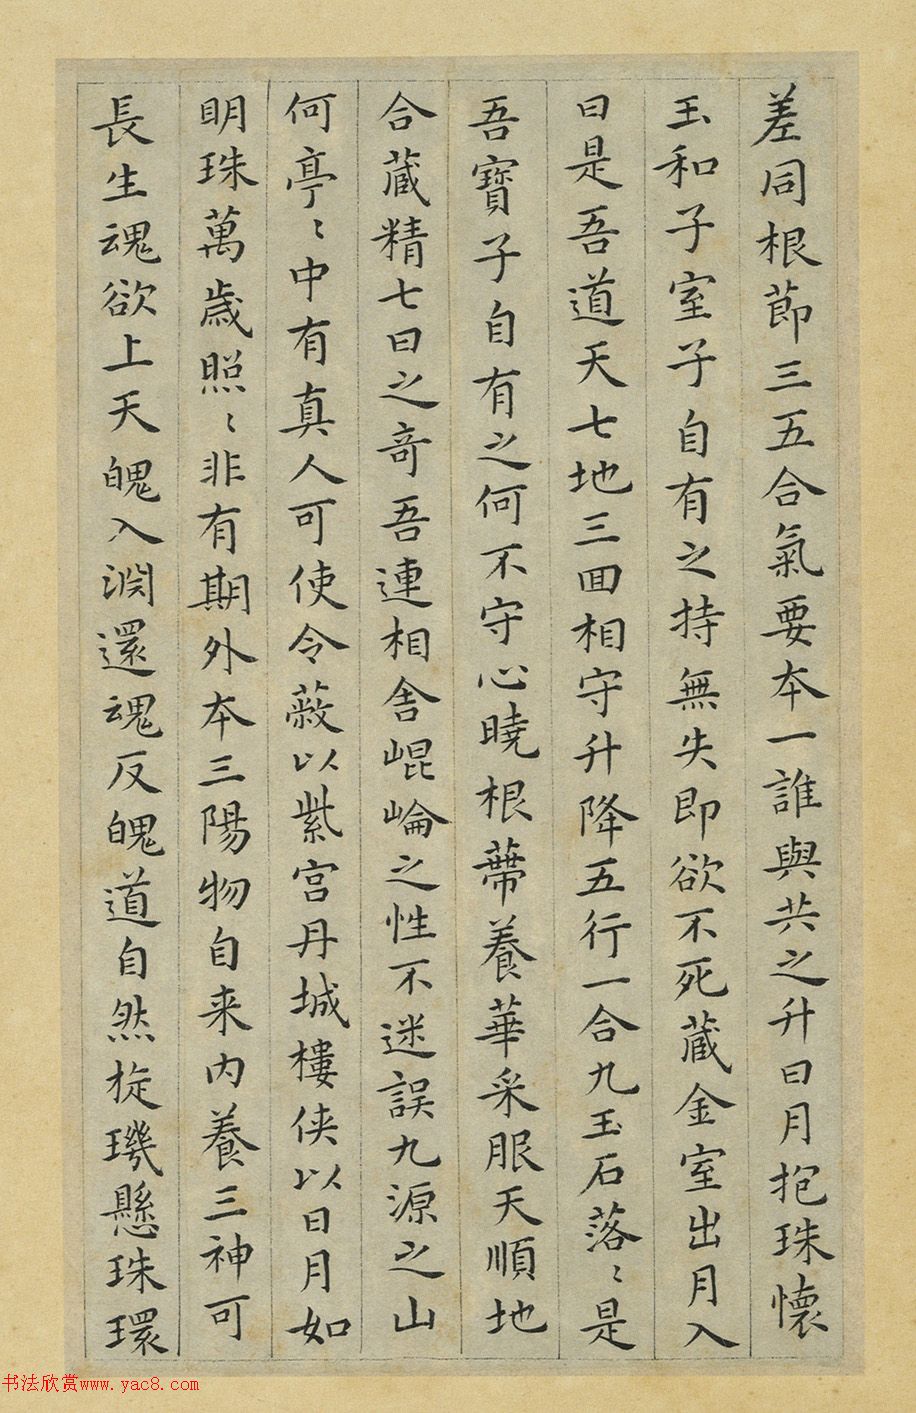 差同根節三五合氣要本一誰與共之升日月抱珠懷
玉和子室子自有之持無失即欲不死藏金室出月入
日是吾道天七地三回相守升降五行一合九玉石落〻是
吾寶子自有之何不守心曉根蔕養華采服天順地
合藏精七日之奇吾連相舍崐崘之性不迷誤九源之山
何亭〻中有真人可使令蔽以紫宫丹城樓俠以日月如
明珠萬歳照〻非有期外本三陽物自来内養三神可
長生魂欲上天魄入淵還魂反魄道自然旋璣懸珠環
书法欣赏www.yac8.com